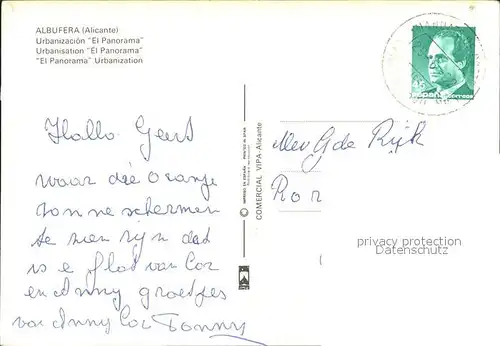 ALBUFERA (Alicante)
Urbanización "El Panorama"
Urbanisation "El Panorama"
"El Panorama" Urbanization
Hallo Geert
waar die Oranje
zonneschermen
te zien zijn dat
is e flat van Cor
en Anny groetjes
van Anny Cor Tonny
COMERCIAL VIPA-Alicante
España correos
Mev G de Rijk
privacy protection
Datenschutz